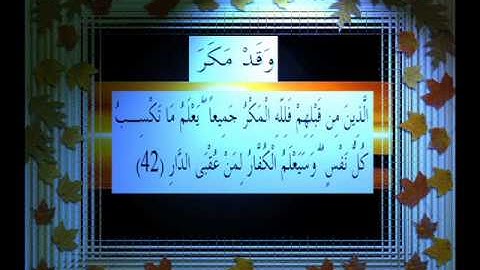 وَقَدْ مَكَرَ
الَّذِينَ مِن قَبْلِهِمْ فَلِلَّهِ الْمَكْرُ جَمِيعاً ۖ يَعْلَمُ مَا تَكْسِـــبُ
كُلُّ نَفْسٍ ۗ وَسَيَعْلَمُ الْكُفَّارُ لِمَنْ عُقْبَى الدَّارِ (42)